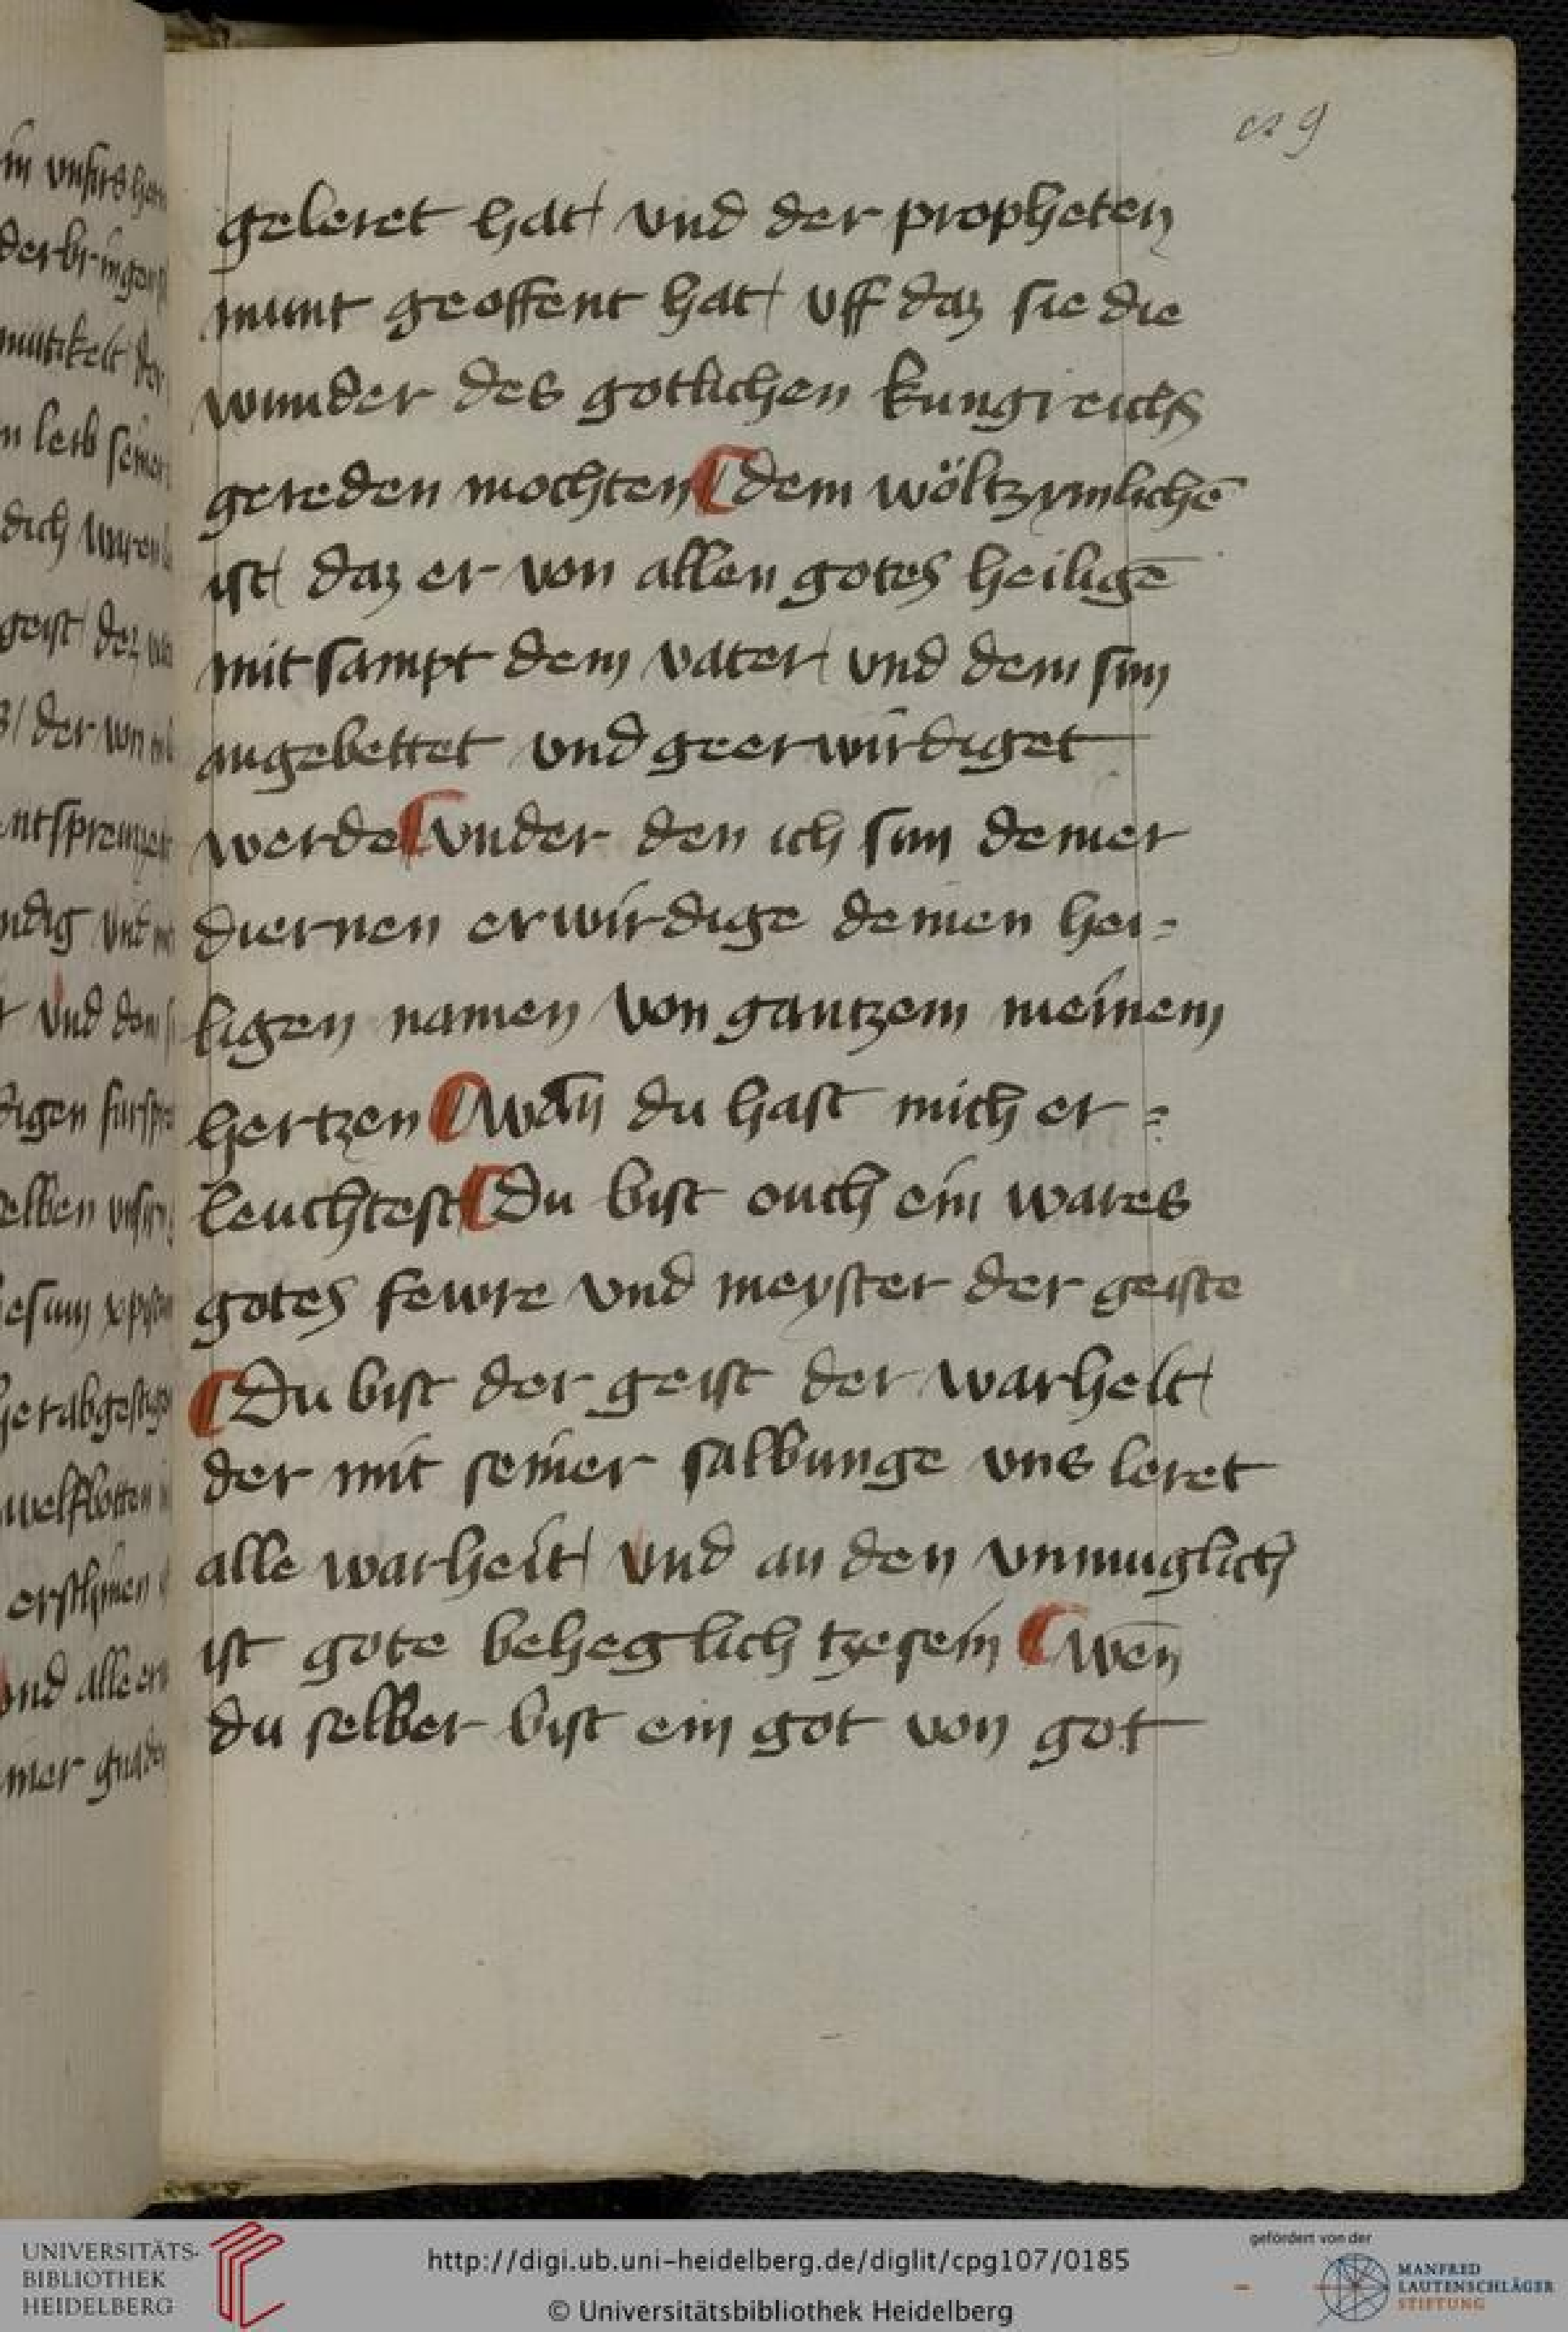 geleret hat / vnd der propheten
munt geoffent hat / vff daz sie die
wunder des gotlichen kungreichs
gereden mochten ¶ dem wöltzymlichē
ist / daz er von allen gotes heiligē
mit sampt dem vater / vnd dem sun
angebettet vnd geerwirdiget
werde ¶ vnder den ich sun deiner
diernen erwirdige deinen hei=
ligen namen von gantzem meinem
hertzen ¶ wañ du hast mich er=
leuchtest ¶ Du bist ouch ein wares
gotes fewre vnd meyster der geiste
¶ Du bist der geist der warheit /
der mit seiner salbunge vns leret
alle warheit / vnd an den vnmuglich
ist gote beheglich tzesein ¶ wen̄
du selber bist ein got von got
UNIVERSITÄTS-
BIBLIOTHEK
HEIDELBERG
http://digi.ub.uni-heidelberg.de/diglit/cpg107/0185
© Universitätsbibliothek Heidelberg
gefördert von der
MANFRED
LAUTENSCHLÄGER
STIFTUNG